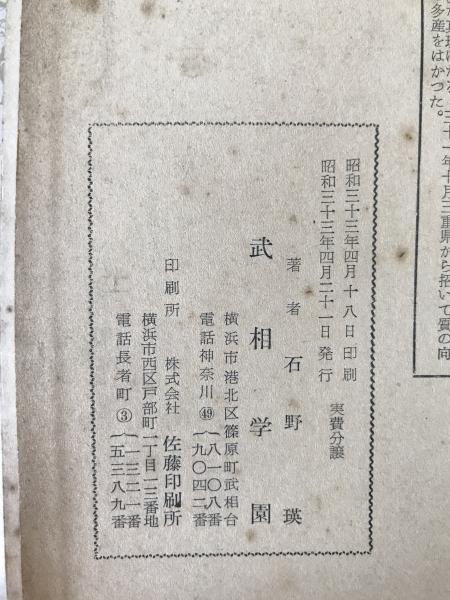 た真珠は
三十一年十月三重県から招いて質の向
多産をはかつた。
昭和三十三年四月十八日印刷
昭和三十三年四月二十一日発行
実費分譲
著者 石野瑛
武相学園
横浜市港北区篠原町武相台
電話神奈川㊾(八一〇八番
(九〇四二番
印刷所 株式会社 佐藤印刷所
横浜市西区戸部町一丁目一三番地
電話長者町③(一三二一番
(五三八九番